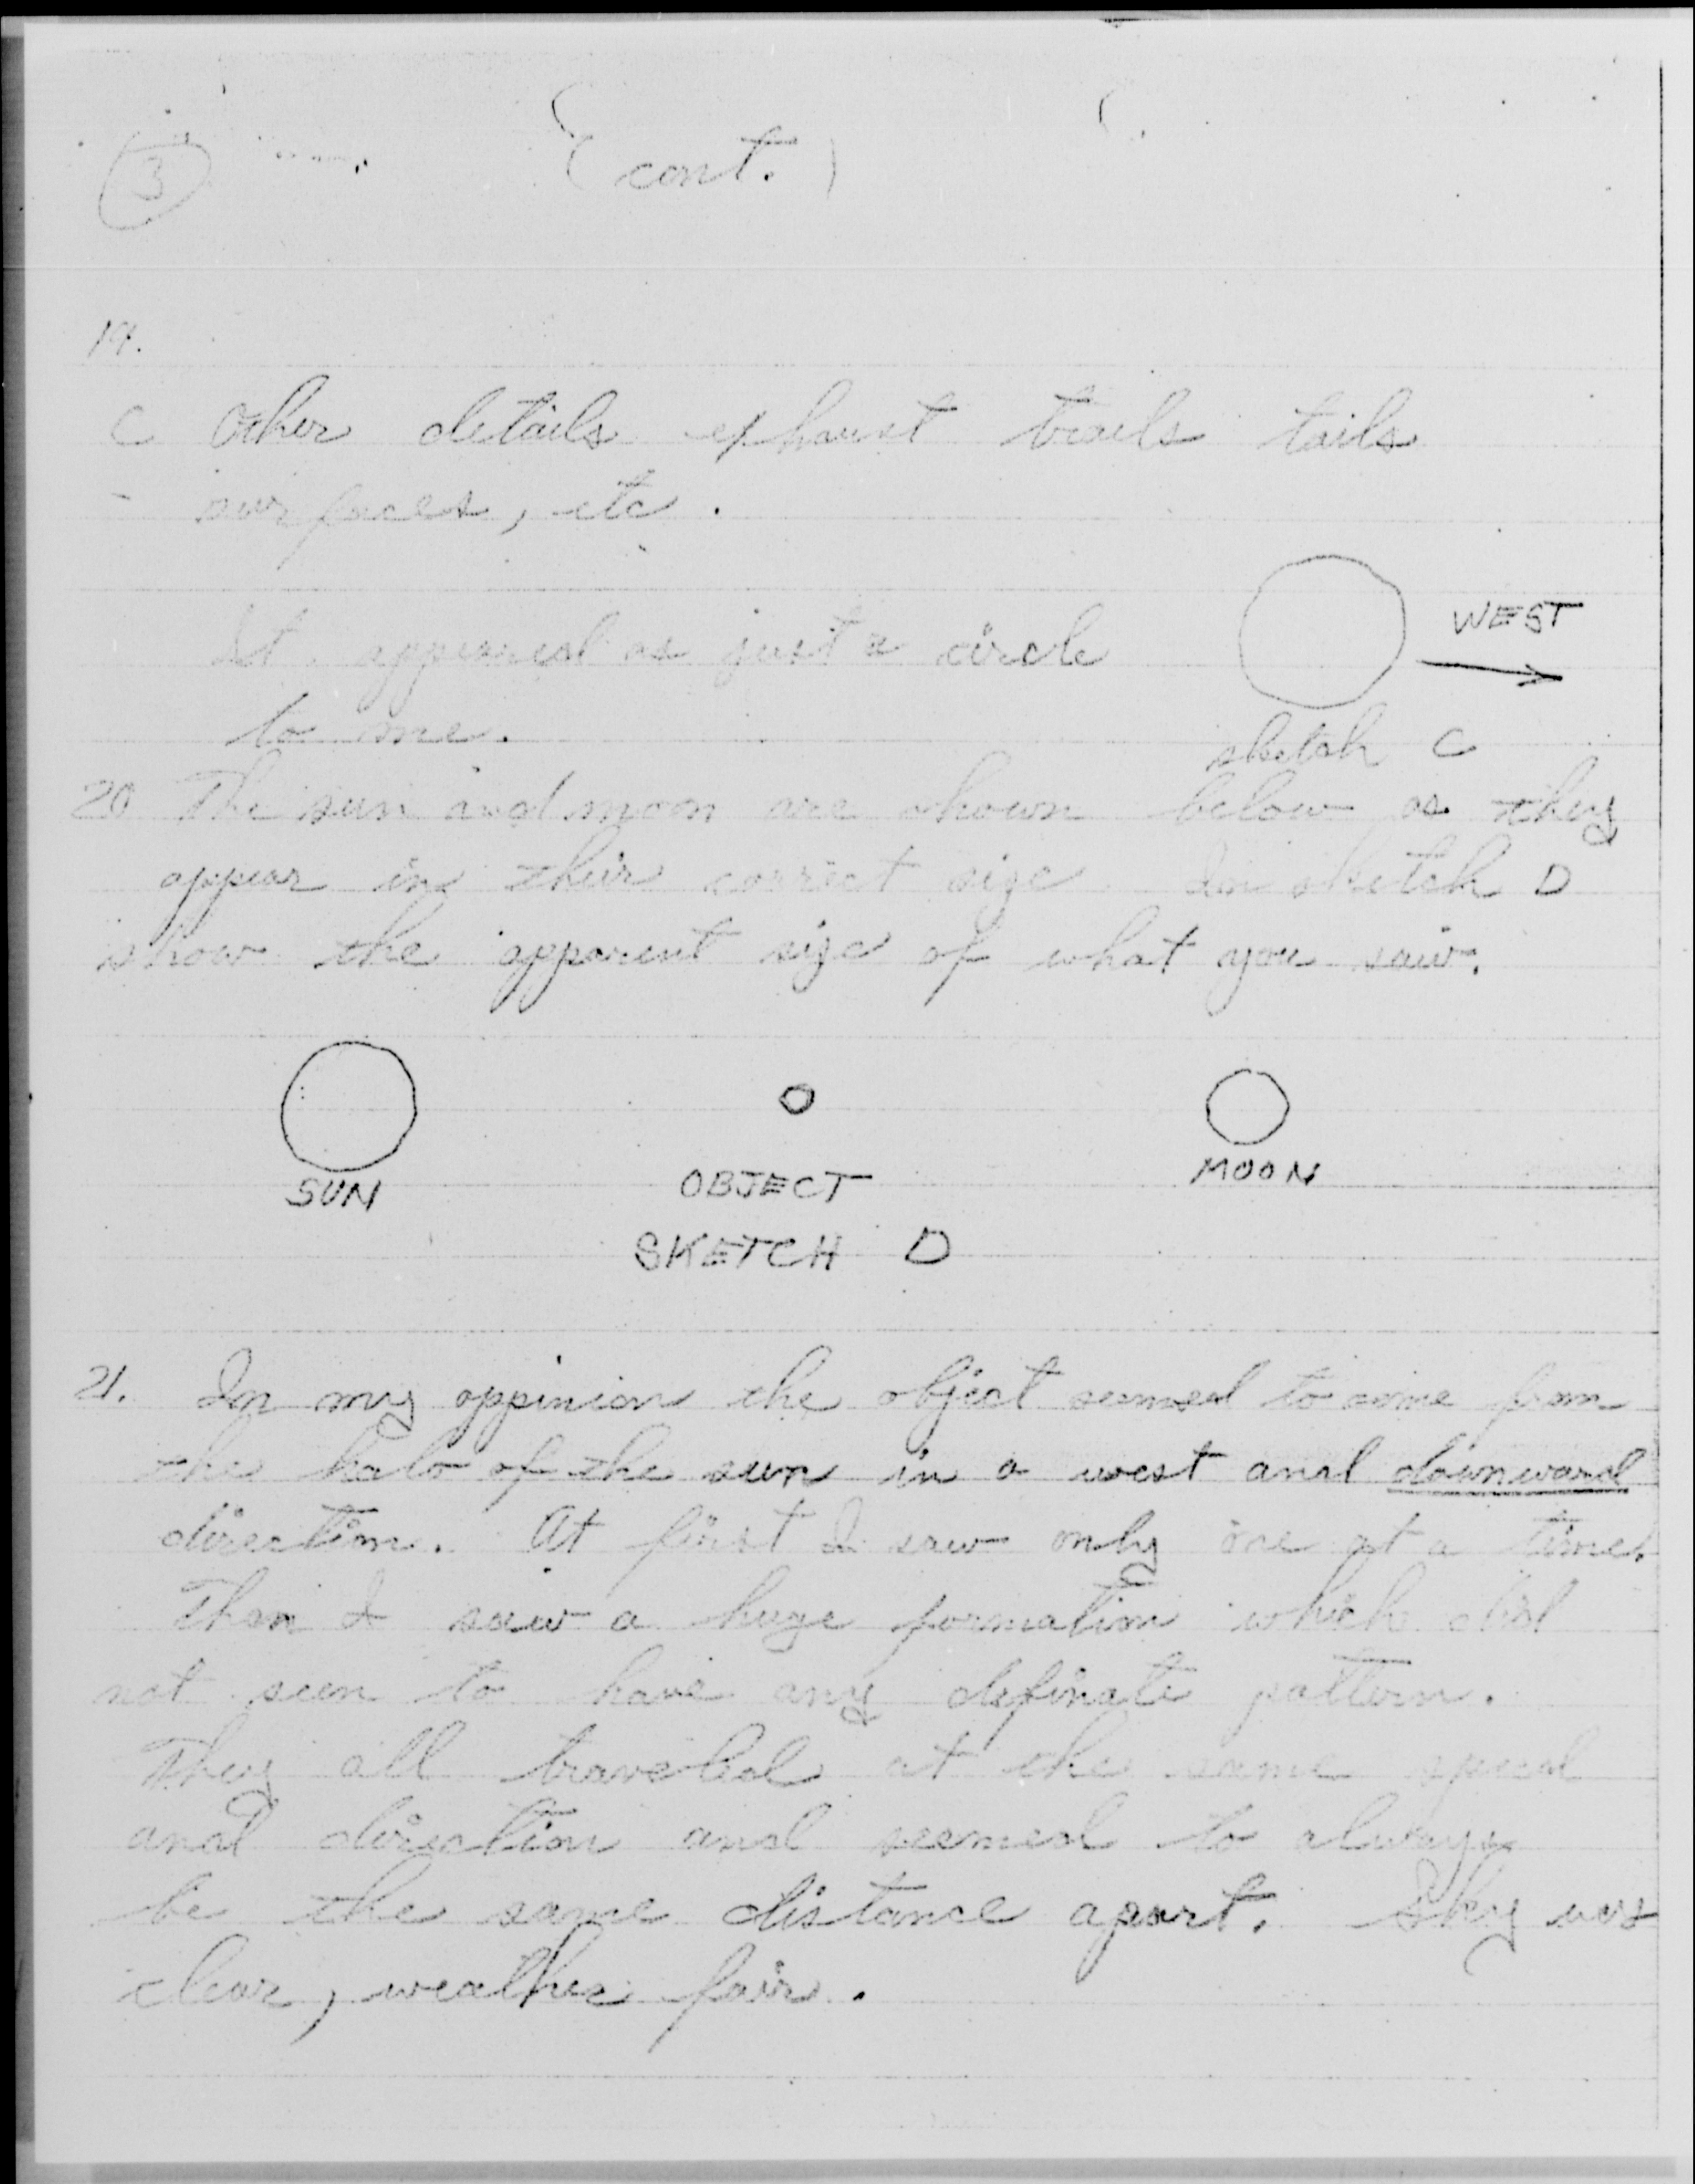 3
(cont.)
19.
C Other details exhaust trails tails
- surfaces, etc.
It appeared as just a circle
WEST
to me.
sketch C
20 The sun and moon are shown below as they
appear in their correct size. In sketch D
show the apparent size of what you saw.
SUN
OBJECT
MOON
SKETCH D
21. In my oppinion the object seemed to come from
the halo of the sun in a west and downward
direction. At first I saw only one at a time.
Then I saw a huge formation which did
not seen to have any definate pattern.
They all traveled at the same speed
and direction and seemed to always
be the same distance apart. Sky was
clear, weather fair.